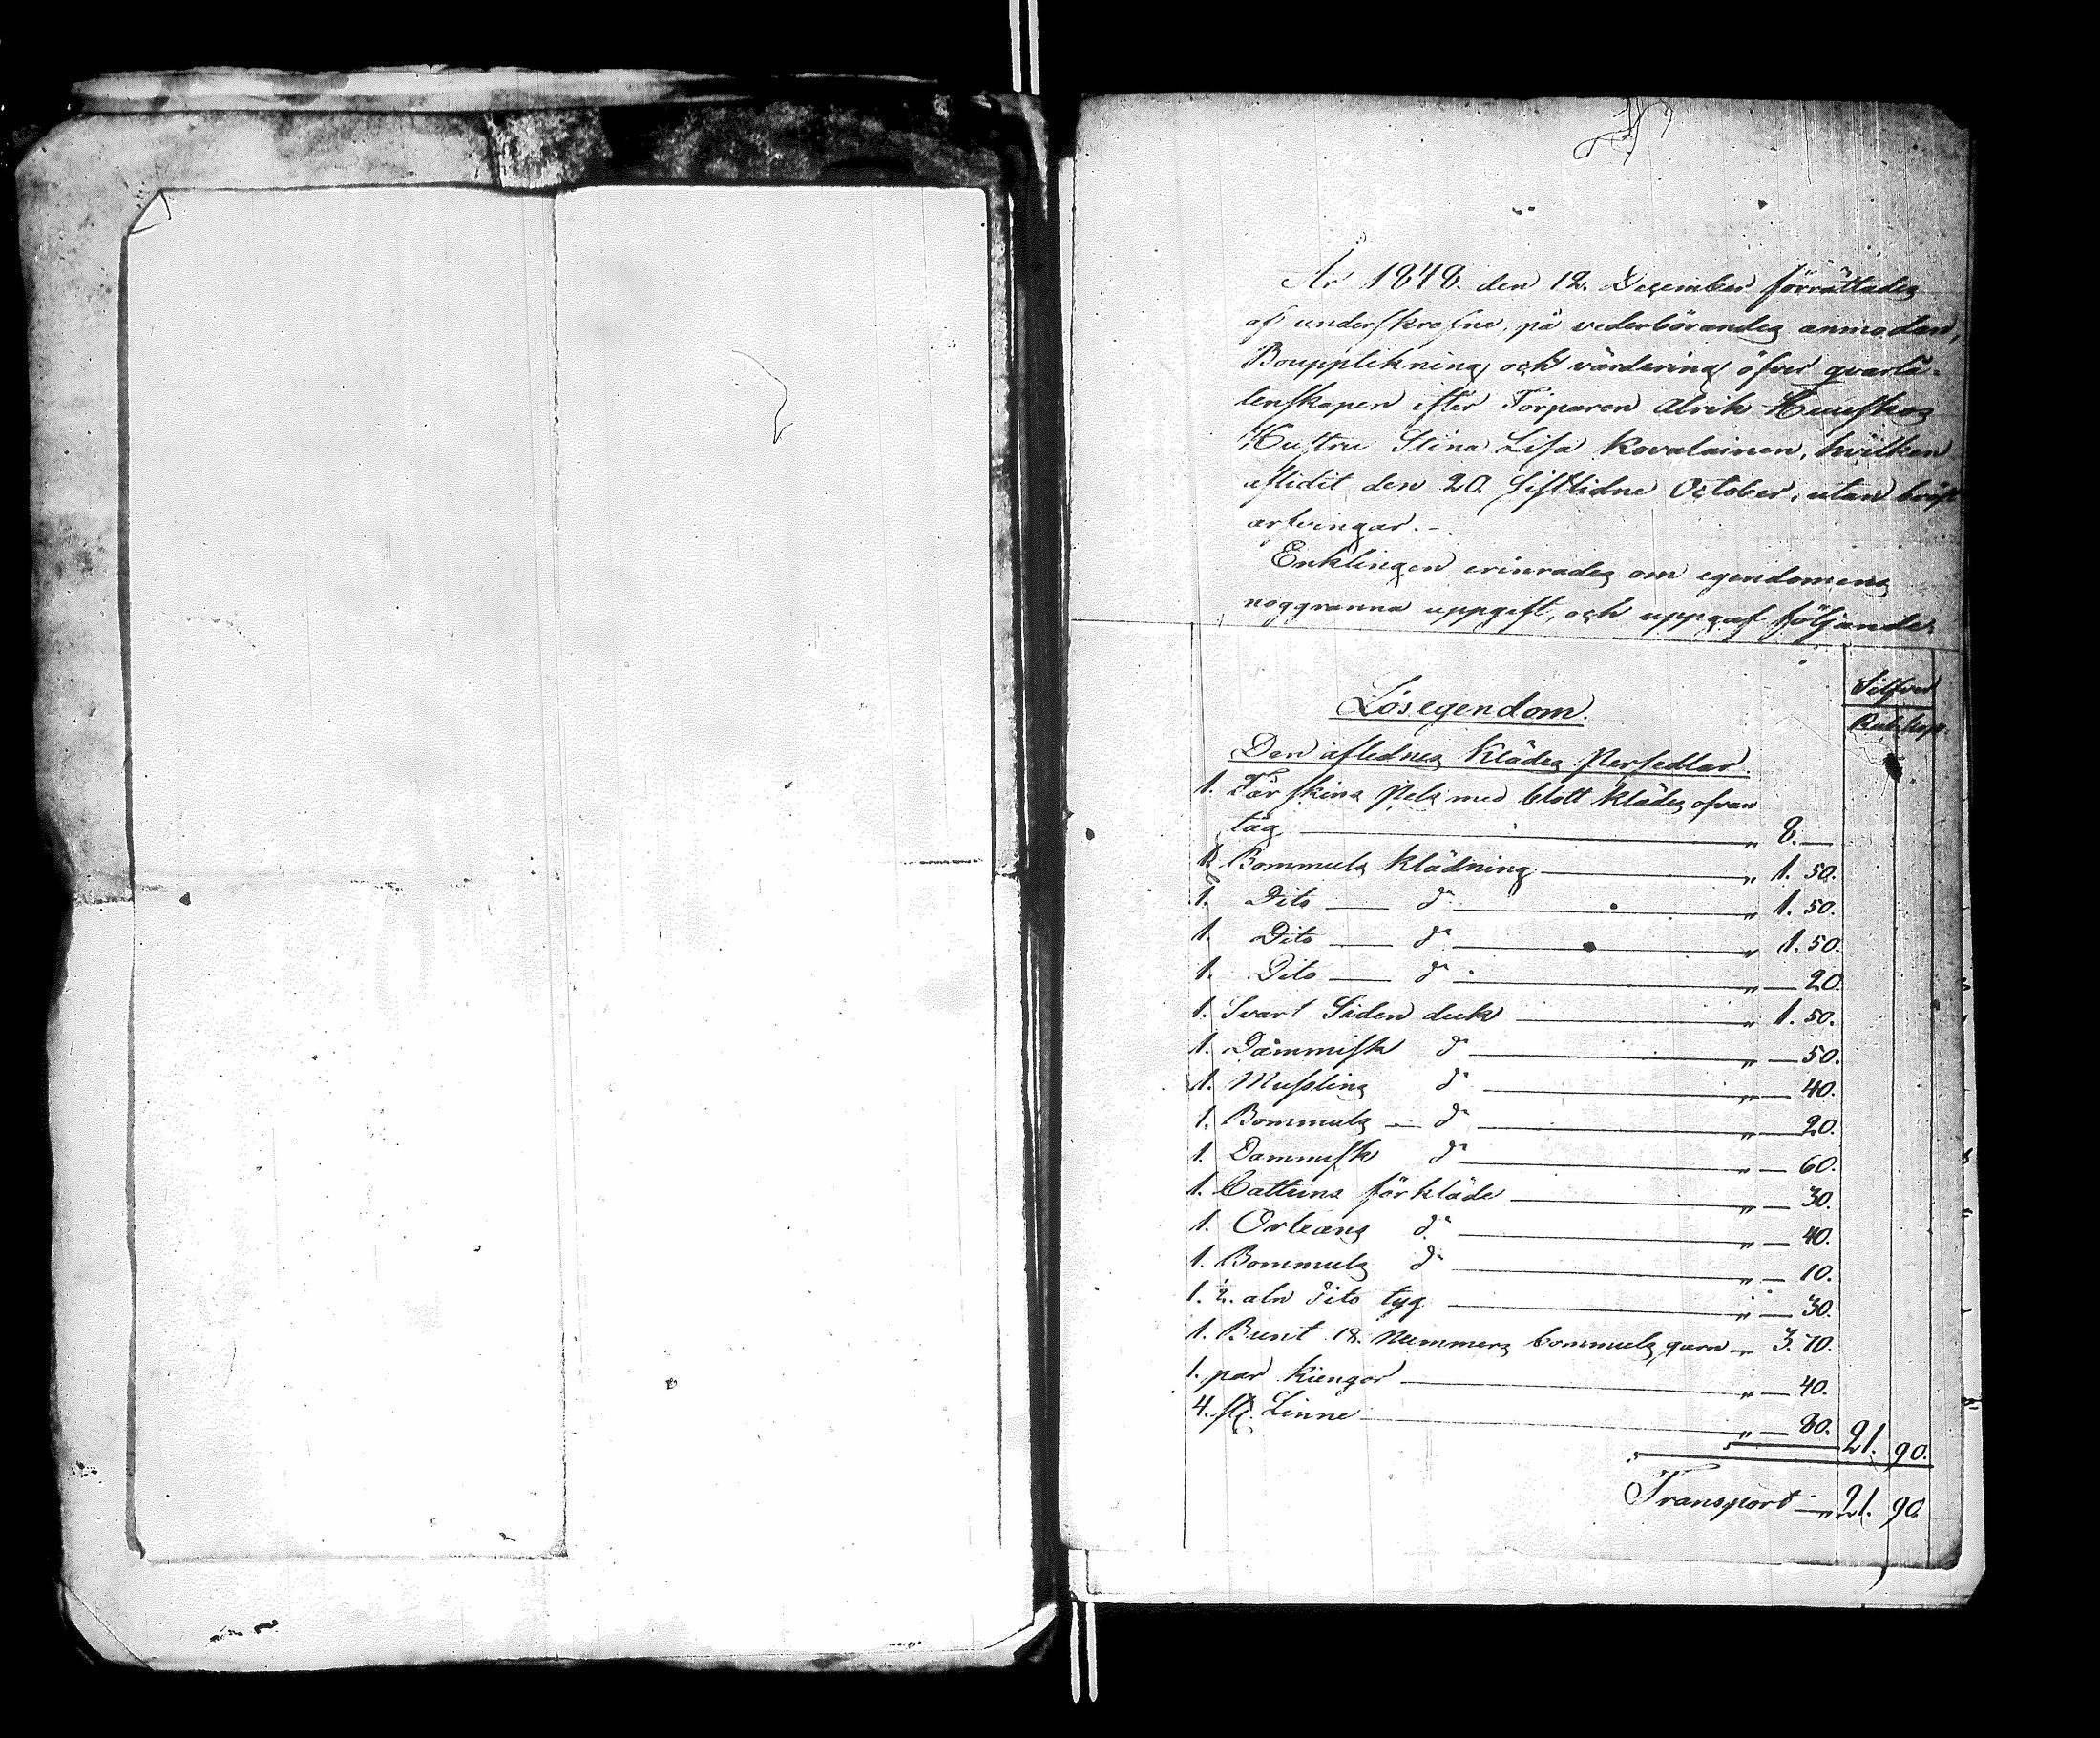 År 1848. den 12. December förrättades
af underskrefne, på vederbörandes anmodan,
Boupptekning och värdering öfver qvarlå-
tenskapen efter Torparen Alrik Huuskas
Hustru Stina Lisa Kovalainen, hvilken
aflidit den 20. sistlidne October, utan bröst
arfvingar.-.
Enklingen erinrades om egendomens
noggranna uppgift, och uppgaf följande:
Silfver
Lösegendom.
Rub. Kop.
Den aflednes Klädes Persedlar.
1. Fårskins Pels med blått klädes ofvan
tåg — " 8. —
1. Bommuls klädning — " 1. 50.
1. Dito — d:o — " 1. 50.
1. Dito — d:o — " 1. 50.
1. Dito — d:o — " — 20.
1. Svart Siden duk — " 1. 50.
1. Dammisk d:o — " — 50.
1. Musslins d:o — " — 40.
1. Bommuls — d:o — " — 20.
1. Dammisk d:o — " — 60.
1. Cattuns förkläde — " — 30.
1. Orleans d:o — " — 40.
1. Bommuls d:o — " — 10.
1. 2. aln Dito tyg — " — 30.
1. Bunt 18. Nummers bommuls garn — " 3. 70.
1. par Kiengor — " — 40.
4. st. Linne — " — 80. 21. 90.
Transport — " 21. 90